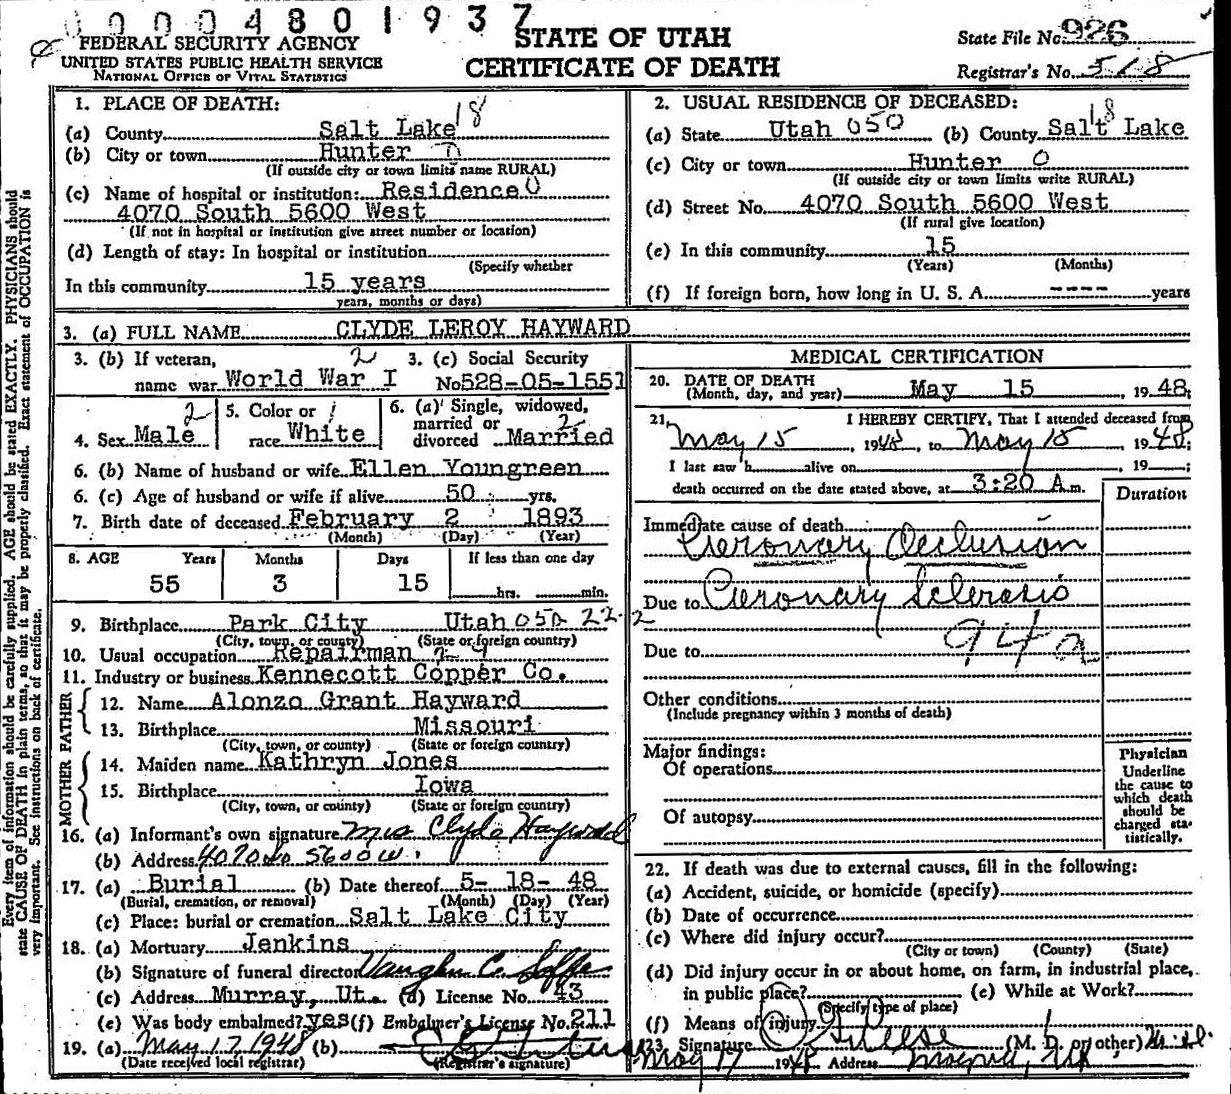 00004801937
FEDERAL SECURITY AGENCY
UNITED STATES PUBLIC HEALTH SERVICE
NATIONAL OFFICE OF VITAL STATISTICS
STATE OF UTAH
CERTIFICATE OF DEATH
State File No. 926
Registrar's No. 518
Every item of information should be carefully supplied. AGE should be stated EXACTLY. PHYSICIANS should
state CAUSE OF DEATH in plain terms, so that it may be properly classified. Exact statement of OCCUPATION is
very important. See instructions on back of certificate.
1. PLACE OF DEATH:
(a) County Salt Lake 18
(b) City or town Hunter
(If outside city or town limits name RURAL)
(c) Name of hospital or institution: Residence 0
4070 South 5600 West
(If not in hospital or institution give street number or location)
(d) Length of stay: In hospital or institution
(Specify whether
In this community 15 years
years, months or days)
2. USUAL RESIDENCE OF DECEASED:
(a) State Utah 050 (b) County Salt Lake 18
(c) City or town Hunter 0
(If outside city or town limits write RURAL)
(d) Street No. 4070 South 5600 West
(If rural give location)
(e) In this community 15
(Years) (Months)
(f) If foreign born, how long in U. S. A. ---- years
3. (a) FULL NAME CLYDE LEROY HAYWARD
3. (b) If veteran, 2
name war World War I
3. (c) Social Security
No 528-05-1551
4. Sex Male 2
5. Color or 1
race White
6. (a) Single, widowed,
married or 2
divorced Married
6. (b) Name of husband or wife Ellen Youngreen
6. (c) Age of husband or wife if alive 50 yrs.
7. Birth date of deceased February 2 1893
(Month) (Day) (Year)
8. AGE Years Months Days If less than one day
55 3 15 hrs. min.
9. Birthplace Park City Utah 050 22-2
(City, town, or county) (State or foreign country)
10. Usual occupation Repairman
11. Industry or business Kennecott Copper Co.
FATHER
12. Name Alonzo Grant Hayward
13. Birthplace Missouri
(City, town, or county) (State or foreign country)
MOTHER
14. Maiden name Kathryn Jones
15. Birthplace Iowa
(City, town, or county) (State or foreign country)
16. (a) Informant's own signature Mrs Clyde Hayward
(b) Address 4070 So 5600 W.
17. (a) Burial (b) Date thereof 5- 18- 48
(Burial, cremation, or removal) (Month) (Day) (Year)
(c) Place: burial or cremation Salt Lake City
18. (a) Mortuary Jenkins
(b) Signature of funeral director Vaughn C.
(c) Address Murray, Ut. (d) License No. 43
(e) Was body embalmed? yes (f) Embalmer's License No. 211
19. (a) May 17, 1948 (b)
(Date received local registrar) (Registrar's signature)
MEDICAL CERTIFICATION
20. DATE OF DEATH
(Month, day, and year) May 15, 1948;
21. I HEREBY CERTIFY, That I attended deceased from
May 15 1948, to May 15 1948;
I last saw h alive on , 19 ;
death occurred on the date stated above, at 3:20 A m.
Duration
Immediate cause of death
Coronary Occlusion
Due to Coronary Sclerosis
94a
Due to
Other conditions
(Include pregnancy within 3 months of death)
Major findings:
Of operations
Of autopsy
Physician
Underline
the cause to
which death
should be
charged sta-
tistically.
22. If death was due to external causes, fill in the following:
(a) Accident, suicide, or homicide (specify)
(b) Date of occurrence
(c) Where did injury occur?
(City or town) (County) (State)
(d) Did injury occur in or about home, on farm, in industrial place,
in public place? (e) While at Work?
(Specify type of place)
(f) Means of injury
23. Signature (M. D. or other) M.D.
May 17 1948 Address Magna, Ut